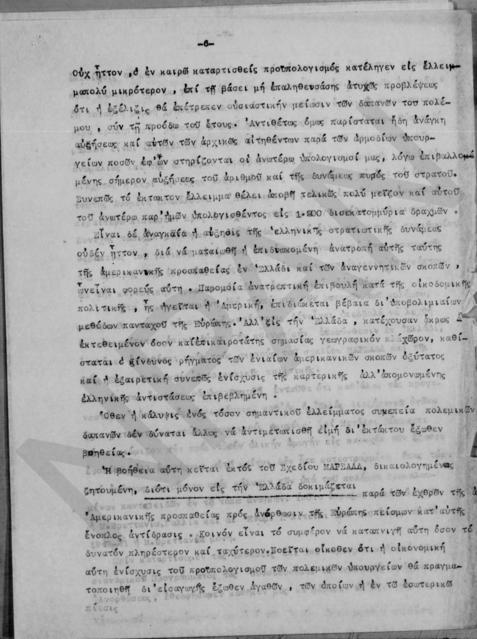 -6-
Οὐχ ἧττον, ὁ ἐν καιρῷ καταρτισθείς προϋπολογισμός κατέληγεν εἰς ἔλλειμ-
μα πολύ μικρότερον, ἐπί τῇ βάσει μή ἐπαληθευσάσης ἀτυχῶς προβλέψεως
ὅτι ἡ ἐξέλιξις θά ἐπέτρεπεν οὐσιαστικήν μείωσιν τῶν δαπανῶν τοῦ πολέ-
μου, σύν τῇ προόδῳ τοῦ ἔτους. Ἀντιθέτως ὅμως παρίσταται ἤδη ἀνάγκη
αὐξήσεως καί αὐτῶν τῶν ἀρχικῶς αἰτηθέντων παρά τῶν ἁρμοδίων ὑπουρ-
γείων ποσῶν ἐφ'ὧν στηρίζονται οἱ ἀνωτέρω ὑπολογισμοί μας, λόγῳ ἐπιβαλλομ
μένης σήμερον αὐξήσεως τοῦ ἀριθμοῦ καί τῆς δυνάμεως πυρός τοῦ στρατοῦ.
Συνεπῶς τό ἔκτακτον ἔλλειμμα θέλει ἀποβῆ τελικῶς πολύ μεῖζον καί αὐτοῦ
τοῦ ἀνωτέρω παρ'ἡμῶν ὑπολογισθέντος εἰς 1.800 δισεκατομμύρια δραχμῶν.
Εἶναι δέ ἀναγκαία ἡ αὔξησις τῆς ἑλληνικῆς στρατιωτικῆς δυνάμεως
οὐδέν ἧττον, διά νά ματαιωθῇ ἡ ἐπιδιωκομένη ἀνατροπή αὐτῆς ταύτης
τῆς ἀμερικανικῆς προσπαθείας ἐν Ἑλλάδι καί τῶν ἀναγεννητικῶν σκοπῶν,
ὧν εἶναι φορεύς αὐτη. Παρομοία ἀνατρεπτική ἐπιβουλή κατά τῆς οἰκοδομικῆς
πολιτικῆς, ἧς ἡγεῖται ἡ Ἀμερική, ἐπιδιώκεται βέβαια δι'ὑποβολιμιαίων
μεθόδων πανταχοῦ τῆς Εὐρώπης. Ἀλλ'εἰς τήν Ἑλλάδα, κατέχουσαν ἄκρως
ἐκτεθειμένον ὅσον καί ἐπικαιροτάτης σημασίας γεωγραφικόν χῶρον, καθί-
σταται ὁ κίνδυνος ρήγματος τῶν ἑνιαίων ἀμερικανικῶν σκοπῶν ὀξύτατος
καί ἡ ἐξαιρετική συνεπῶς ἐνίσχυσις τῆς καρτερικῆς ἀλλ'ἀπομονωμένης
ἑλληνικῆς ἀντιστάσεως ἐπιβεβλημένη.
Ὅθεν ἡ κάλυψις ἑνός τόσον σημαντικοῦ ἐλλείμματος συνεπείᾳ πολεμικῶν
δαπανῶν δέν δύναται ἄλλως νά ἀντιμετωπισθῇ εἰμή δι'ἐκτάκτου ἔξωθεν
βοηθείας.
Ἡ βοήθεια αὕτη κεῖται ἐκτός τοῦ Σχεδίου ΜΑΡΣΑΛΛ, δικαιολογημένως
ζητουμένη, διότι μόνον εἰς τήν Ἑλλάδα δοκιμάζεται παρά τῶν ἐχθρῶν τῆς
Ἀμερικανικῆς προσπαθείας πρός ἀνόρθωσιν τῆς Εὐρώπης πείσμων κατ'αὐτῆς
ἔνοπλος ἀντίδρασις. Κοινόν εἶναι τό συμφέρον νά καταπνιγῇ αὕτη ὅσον τό
δυνατόν πληρέστερον καί ταχύτερον. Νοεῖται οἴκοθεν ὅτι ἡ οἰκονομική
αὕτη ἐνίσχυσις τοῦ προϋπολογισμοῦ τῶν πολεμικῶν ὑπουργείων θά πραγμα-
τοποιηθῇ δι'εἰσαγωγῆς ἔξωθεν ἀγαθῶν, τῶν ὁποίων ἡ ἐν τῷ ἐσωτερικῷ
πίεσις